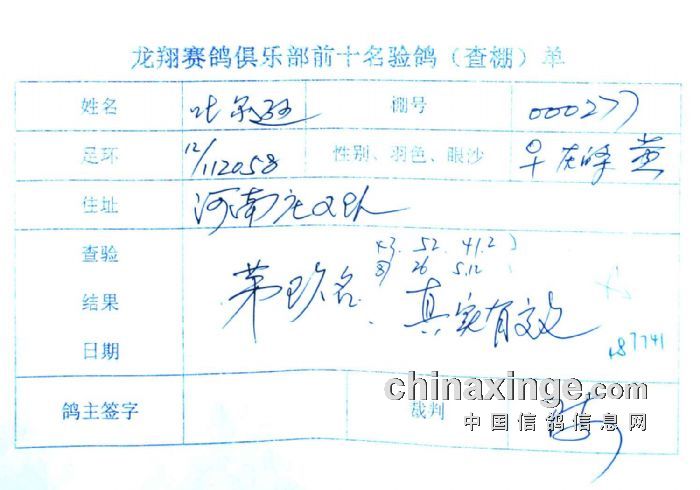 龙翔赛鸽俱乐部前十名验鸽（查棚）单
姓名 棚号 000277
足环 12/112058 性别、羽色、眼沙 灰 黄
住址 河南
查验 43. 52. 41.2
26 5.12
结果 第玖名、真实有效
日期 87741
鸽主签字 裁判
chinaxinge.com
中国信鸽信息网